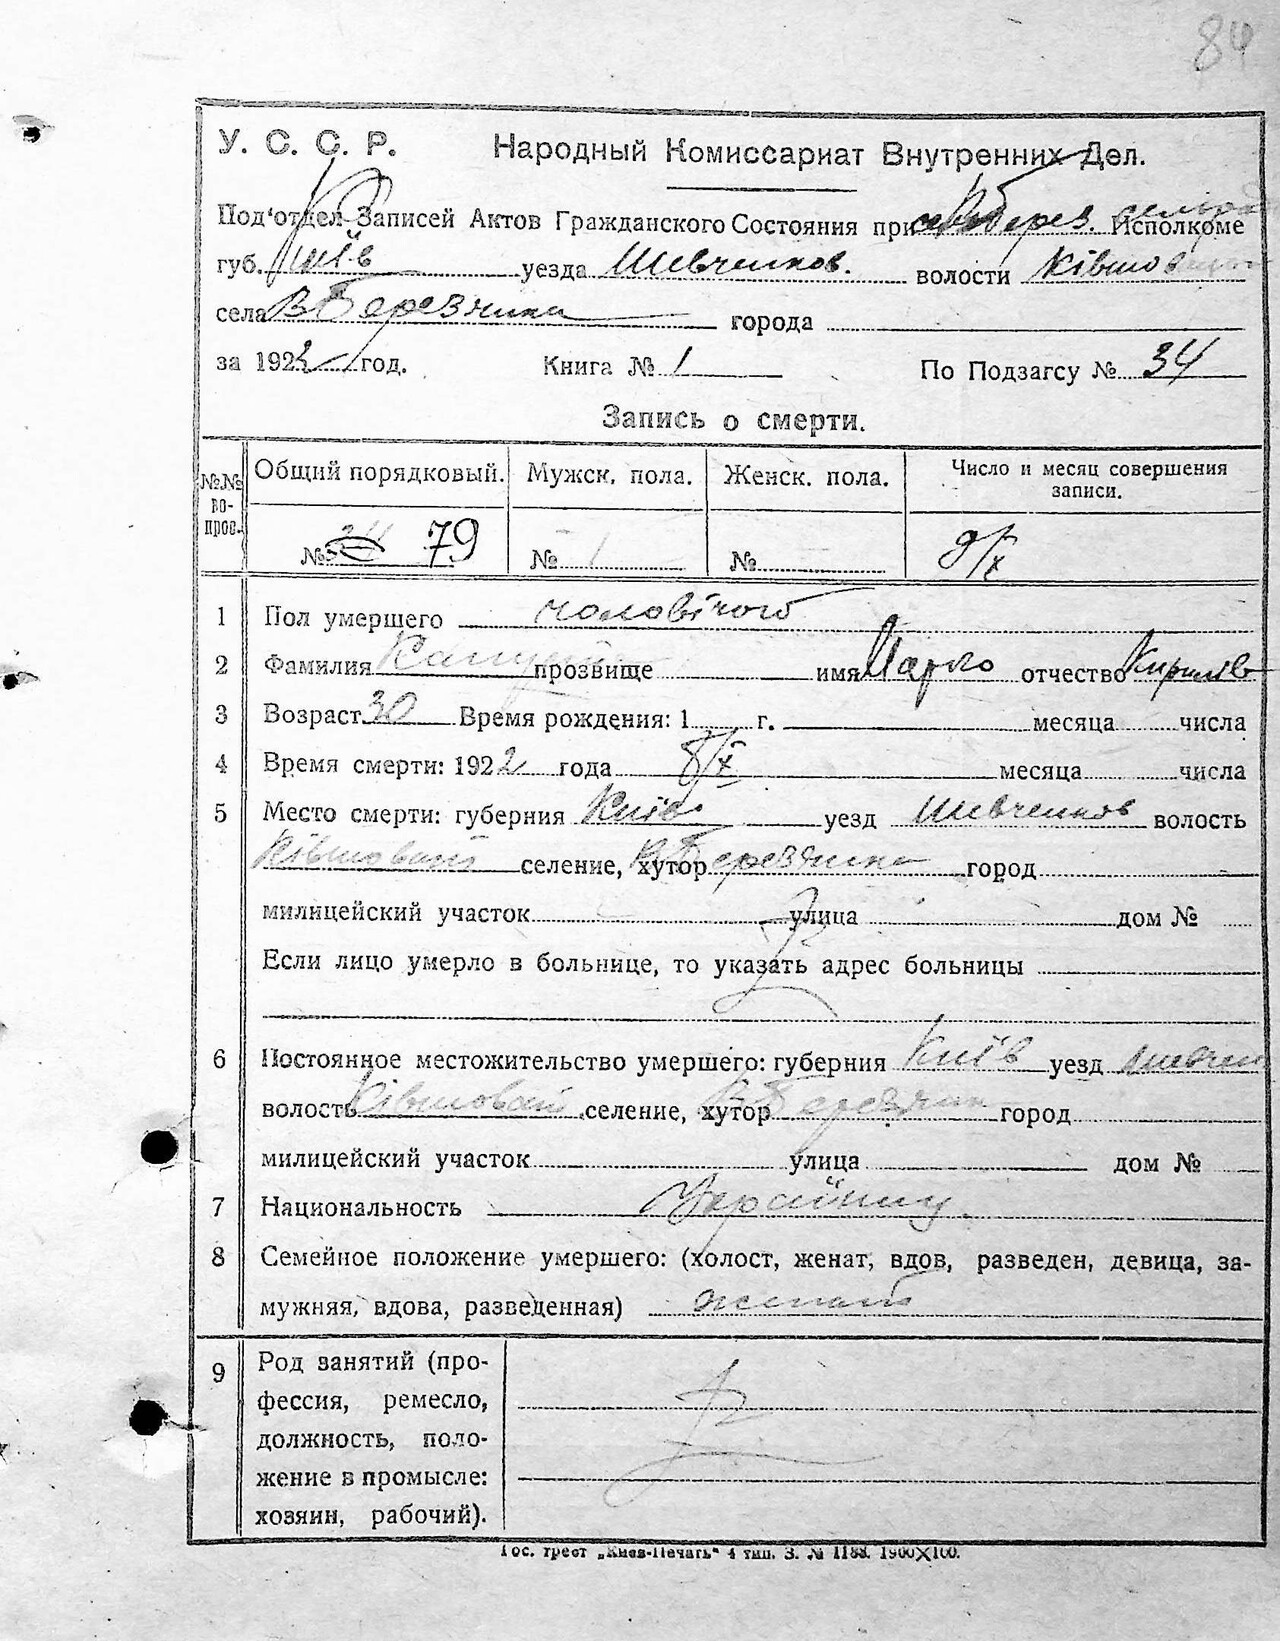 84
У. С. С. Р. Народный Комиссариат Внутренних Дел.
Под'отдел Записей Актов Гражданского Состояния при Исполкоме
губ. Київ уезда Шевченков. волости
села В Березянка города
за 1922 год. Книга № 1 По Подзагсу № 34
Запись о смерти.
№№ вопрос. Общий порядковый. Мужск. пола. Женск. пола. Число и месяц совершения записи.
№ 34 79 № 1 № 9/X
1 Пол умершего чоловічого
2 Фамилия прозвище имя Марко отчество Кирилів
3 Возраст 30 Время рождения: 1 г. месяца числа
4 Время смерти: 1922 года 8/X месяца числа
5 Место смерти: губерния Київ уезд Шевченков волость
селение, хутор В Березянка город
милицейский участок улица дом №
Если лицо умерло в больнице, то указать адрес больницы
6 Постоянное местожительство умершего: губерния Київ уезд Шевчен
волость селение, хутор В Березянка город
милицейский участок улица дом №
7 Национальность Українец.
8 Семейное положение умершего: (холост, женат, вдов, разведен, девица, за-
мужняя, вдова, разведенная) женат
9 Род занятий (про-
фессия, ремесло,
должность, поло-
жение в промысле:
хозяин, рабочий).
Гос. трест „Киев-Печать" 4 тип. З. № 1188. 1900X100.